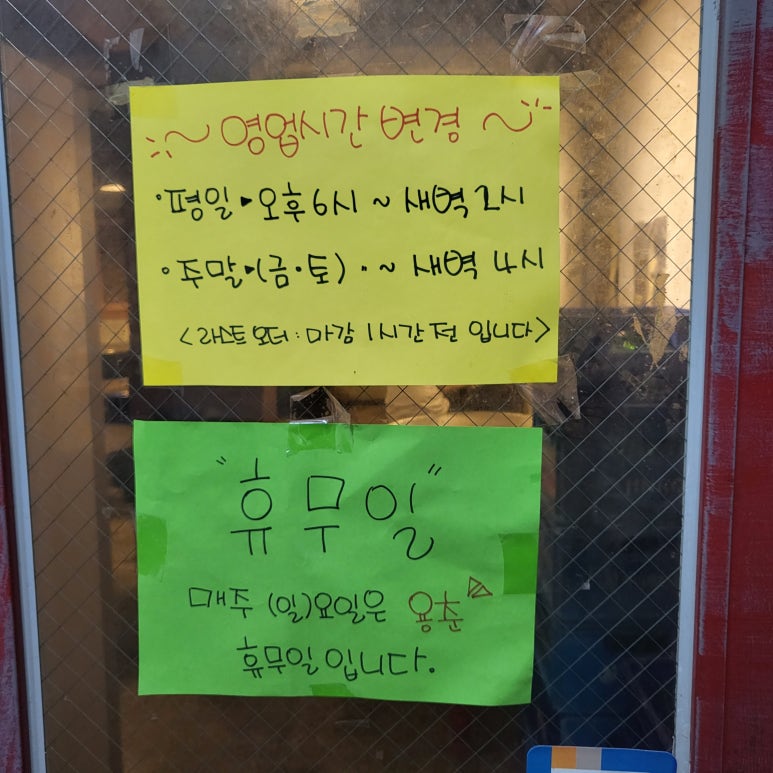 영업시간 변경
• 평일 ▸ 오후 6시 ~ 새벽 2시
• 주말 ▸ (금•토) • ~ 새벽 4시
<라스트 오더 : 마감 1시간 전 입니다>
"휴무일"
매주 (일)요일은 용춘
휴무일 입니다.